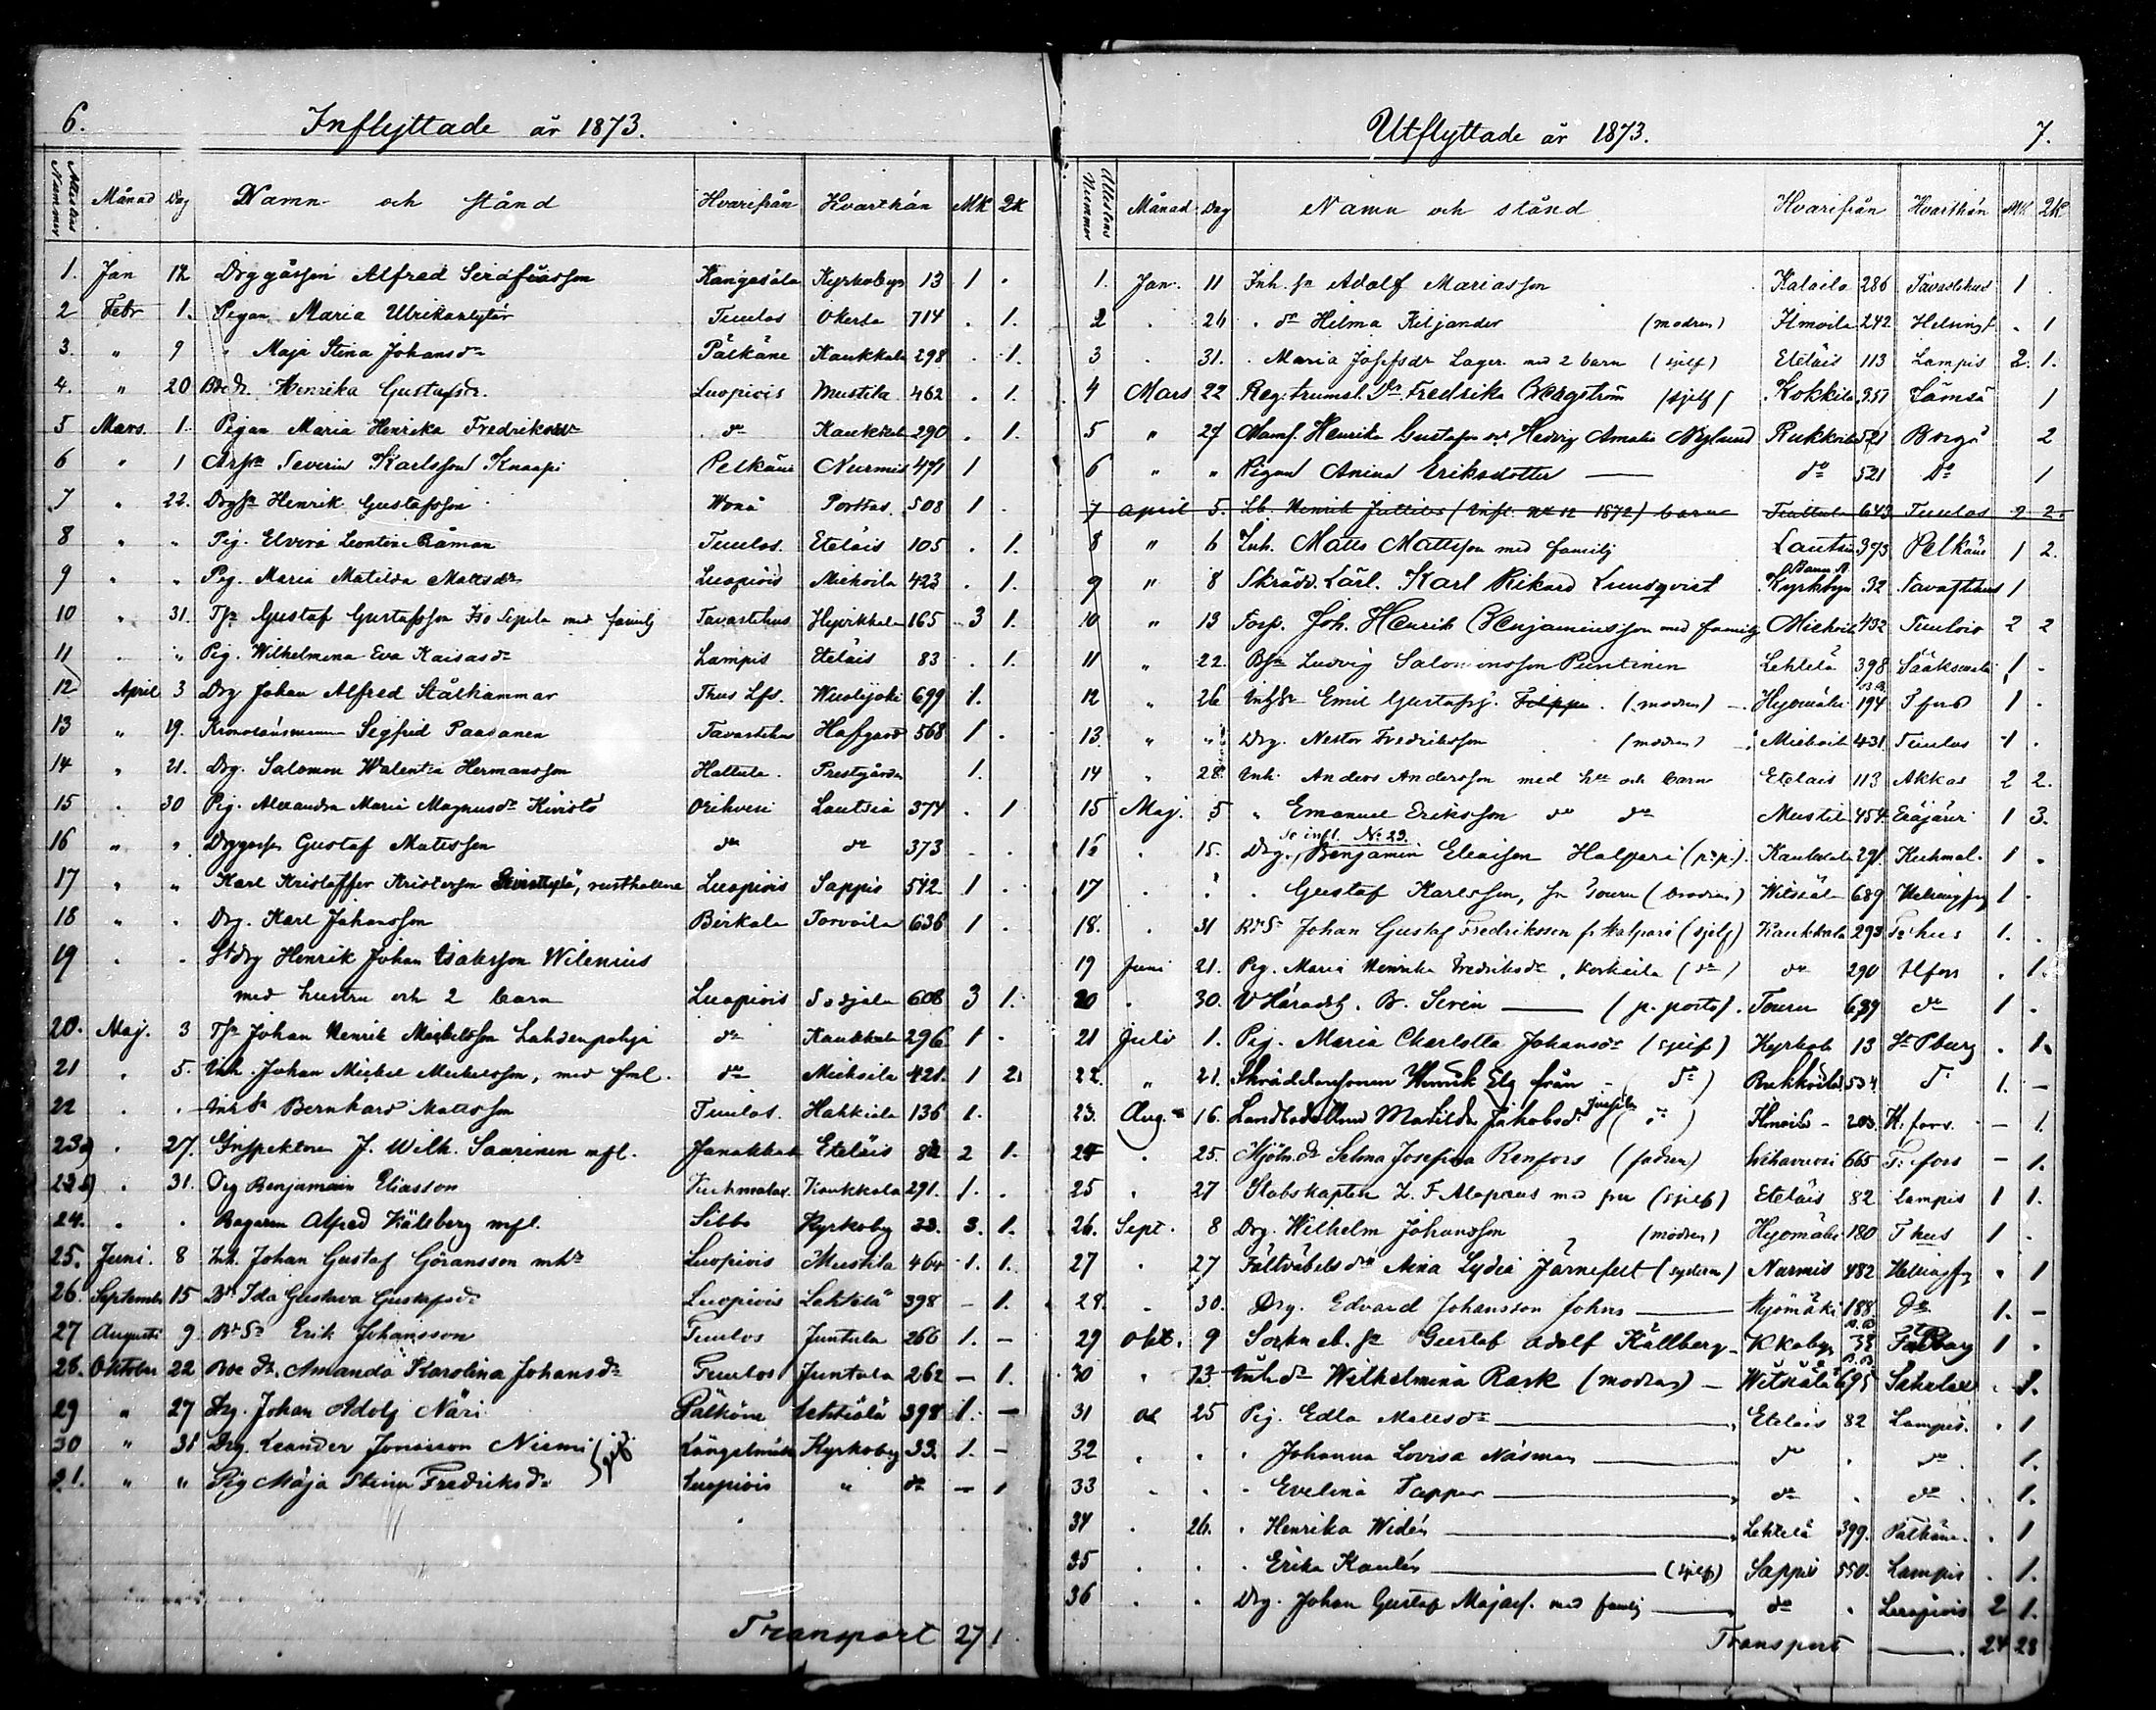 6.
Inflyttade år 1873.
Attestens Nummer Månad Dag Namn och stånd Hvarifrån Hvarthän Mk Qk
1. Jan 12 Drggossen Alfred Serafiasson Kangasala Kyrkoby 13 1 .
2 Febr 1. Pigan Maria Ulrikasdotter Tuulos Okerla 714 . 1.
3. " 9 " Maja Stina Johansdr Pälkäne Kaukkala 298 . 1.
4. " 20 Bdr. Henrika Gustafsdr. Luopiois Mustila 462 . 1.
5 Mars. 1. Pigan Maria Henrika Fredriksdr dr Kaukkala 290 . 1.
6 " 1 Severin Karlsson Knaapi Pelkäne Nurmis 471 1
7 . 22. Drgsn Henrik Gustafsson Wonå Porttas 508 1 .
8 " " Pig. Elvira Leontina Råman Tuulos. Eteläis 105 . 1.
9 . " Pig. Maria Matilda Mattsdr Luopiois Miehoila 423 . 1.
10 . 31. Tsn Gustaf Gustafsson Iso Sipila med familj Tavastehus Hyrkkala 165 3 1.
11 . " Pig. Wilhelmina Eva Kaisasdr Lampis Eteläis 83 . 1.
12 April 3 Drg Johan Alfred Stålhammar Thus Lfs. Wuolijoki 699 1.
13 " 19. Kronolänsman Segfrid Paasonen Tavastehus Hafgård 568 1 .
14 " 21. Drg. Salomon Walentin Hermansson Hattula. Prestgården 1.
15 . 30 Pig. Alexandra Maria Magnusdr Kivistö Orihvesi Lautsia 374 . 1
16 " " Drggossen Gustaf Matsson dr dr 373 . .
17 " " Karl Kristoffer Kristersson rusthållare Luopiois Sappis 542 1 .
18 " . Drg. Karl Johansson Birkala Torvoila 636 1 .
19 . . Stdrg Henrik Johan Isaksson Wilenius
med hustru och 2 barn Luopiois 608 3 1.
20. Maj. 3 Tsn Johan Henrik Mickelsson Lahdenpohja dr Kaukkala 296 1 .
21 . 5. Inh. Johan Mickel Mickelsson, med fml. dr Miehoila 421. 1 2.
22 . . Inhsn Bernhard Mattsson Tuulos. Hakkiala 136 1.
23a) . 27. Inspektoren J. Wilh. Saarinen mfl. Janakkala Eteläis 82 2 1.
23b) . 31. Drg Benjamin Eliasson Kuhmalax. Kaukkala 291. 1. .
24. . . Bagaren Alfred Källberg mfl. Sibbo Kyrkoby 33. 3. 1.
25. Juni. 8 Inh. Johan Gustaf Göransson mhu Luopiois Mustila 464 1. 1.
26. September 15 Dr Ida Gustava Gustafsdr Luopiois Lehtelä 398 – 1.
27 Augusti 9 Bdsn Erik Johansson Tuulos Juntula 266 1. –
28. Oktober 22 Bdr. Amanda Karolina Johansdr Tuulos Juntula 262 – 1.
29 " 27 Drg. Johan Adolf Näri Pälkäne Lehtelä 398 1. –
30 " 31 Drg. Leander Jonasson Niemi Längelmäki Kyrkoby 33. 1. –
31. " " Pig Maja Stina Fredriksdr Luopiois " dr – 1
Transport 27
7.
Utflyttade år 1873.
Attestens Nummer Månad Dag Namn och stånd Hvarifrån Hvarthän Mk Qk
1. Jan. 11 Inh. sn Adolf Mariasson Kataila 286 Tavastehus 1 .
2 . 26 . dr Hilma Kiljander (modren) Ilmoila 242 Helsingf. . 1
3 . 31. . Maria Josefsdr Lager med 2 barn (sjelf) Eteläis 113 Lampis 2. 1.
4 Mars 22 Reg. trumsl. Dr. Fredrika Bergström (sjelf) Kokkila 251 Lämsä 1
5 " 27 Mams. Henrika Gustafva och Hedvig Amalia Nylund Rukkoila 521 Borgå 2
6 " " Pigan Anina Eriksdotter — do 521 Do 1
7 April 5. Lb. Henrik (Infl. No 12 1872) barn 643 Tuulos 2 2.
8 " 6 Inh. Matts Mattsson med familj Lautsia 373 Pelkäne 1 2.
9 " 8 Skrädd. Lärl. Karl Rikard Lundqvist Kyrkbyn 32 Tavastehus 1
10 " 13 Torp. Joh. Henrik Benjaminsson med familj Miehoila 432 Tuulois 2 2
11 " 22. Bsn Ludvig Salomonsson Puntinen Lehtelä 398 Sääksmäki 1 .
12 " 26 Inhsn Emil Gustafss. (modren) – Hyömäki 194 Tfors 1 .
13. " " Drg. Nestor Fredriksson (modren) Miehoila 431 Tuulos 1 .
14 " 28 Inh. Anders Andersson med hu och barn Eteläis 113 Akkas 2 2.
15 Maj. 5 " Emanuel Eriksson dr dr Mustila 454 Eräjärvi 1 3.
se infl. No 23.
16 . 15. Drg. Benjamin Eliaisson Halpari (p.p.) Kaukkala 291. Kuhmal. 1 .
17 . . . Gustaf Karlsson, fr Touru (brodren) Witsiälä 689 Helsingfors 1 .
18. . 31 Bdsn Johan Gustaf Fredriksson fr Halpari (sjelf) Kaukkala 293 T:hus 1. .
19 Juni 21. Pig. Maria Henrika Fredriksdr, Korkeila (dr) dr 290 Hfors . 1.
20 . 30. V Häradsh. B. Seven — (p. posto). Touru 689 dr 1 .
21 Juli 1. Pig. Maria Charlotta Johansdr (sjelf) Kyrkob 13 St Pburg . 1.
22. " 21. Skräddaresonen Henrik Elg från – (dr) Rukkoila 534 dr 1. –
23. Aug. 16. Landbodottern Matilda Jakobsdr Jussila (dr) Ilmoila – 203. H:fors. – 1.
24 . 25. Mjöln. dr Selma Josefina Renfors (fadren) Wihavuosi 665 T:fors – 1.
25 . 27 Stabskapten Z. F. Alopæus med fru (sjelf) Eteläis 82 Lampis 1 1.
26. Sept. 8 Drg. Wilhelm Johansson (modren) Hyömäki 180 T hus 1 .
27 . 27 Fältväbelsdr Aina Lydia Järnefelt (systern) Nurmis 482 Helsingfrs . 1
28. . 30. Drg. Edvard Johansson Johns — Hyömäki 188. dr 1. –
29 Okt. 9 Sockn sb. sn Gustaf Adolf Källberg – Kkoby 33 1 .
30 . 13. Inh dr Wilhelmina Rask (modren) – Witsiälä 695 Sahalax . 1.
31 25 Pig. Edla Mattsdr — Eteläis 82 Lampis. . 1
32 . . . Johanna Lovisa Näsman — dr . dr . 1.
33 . . . Evelina Tapper — dr . dr . 1.
34 . 26. . Henrika Widén — Lehtelä 399. Pälkäne. . 1
35 . . . Erika Kaulén — (sjelf) Sappis 550. Lampis . 1.
36 . . Drg. Johan Gustaf Majass. med familj — dr . Luopiois 2 1.
Transport — 24 28